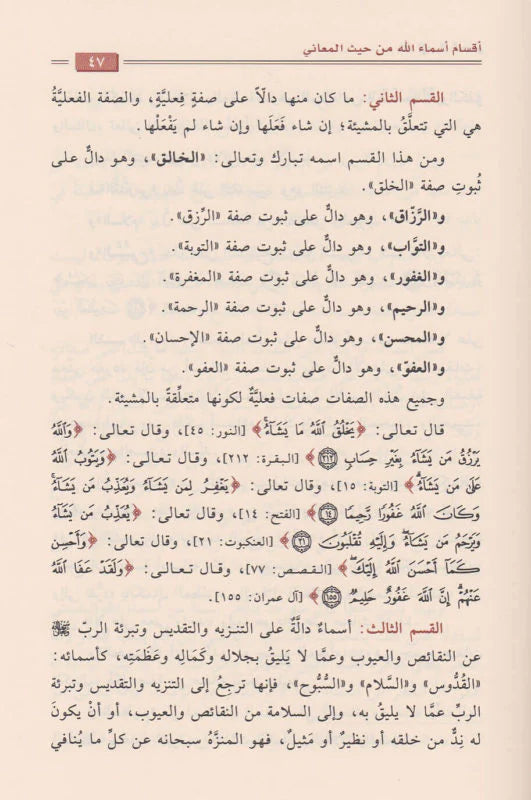 أقسام أسماء الله من حيث المعاني
٤٧
القسم الثاني: ما كان منها دالًّا على صفةٍ فِعليَّةٍ، والصفة الفعليَّةُ
هي التي تتعلَّقُ بالمشيئة؛ إن شاء فَعَلَها وإن شاء لم يَفْعَلْها.
ومن هذا القسم اسمه تبارك وتعالى: «الخالق»، وهو دالٌّ على
ثُبوتِ صفة «الخلق».
و«الرَّزاق»، وهو دالٌّ على ثبوت صفة «الرِّزق».
و«التوَّاب»، وهو دالٌّ على ثبوت صفة «التوبة».
و«الغفور»، وهو دالٌّ على ثبوت صفة «المغفرة».
و«الرحيم»، وهو دالٌّ على ثبوت صفة «الرحمة».
و«المحسن»، وهو دالٌّ على ثبوت صفة «الإحسان».
و«العفوّ»، وهو دالٌّ على ثبوت صفة «العفو».
وجميع هذه الصفات صفات فعليَّةٌ لكونها متعلِّقةً بالمشيئة.
قال تعالى: ﴿يَخْلُقُ اللَّهُ مَا يَشَاءُ﴾ [النور: ٤٥]، وقال تعالى: ﴿وَاللَّهُ
يَرْزُقُ مَن يَشَاءُ بِغَيْرِ حِسَابٍ ٢١٢﴾ [البقرة: ٢١٢]، وقال تعالى: ﴿وَيَتُوبُ اللَّهُ
عَلَىٰ مَن يَشَاءُ﴾ [التوبة: ١٥]، وقال تعالى: ﴿يَغْفِرُ لِمَن يَشَاءُ وَيُعَذِّبُ مَن يَشَاءُ
وَكَانَ اللَّهُ غَفُورًا رَّحِيمًا ١٤﴾ [الفتح: ١٤]، وقال تعالى: ﴿يُعَذِّبُ مَن يَشَاءُ
وَيَرْحَمُ مَن يَشَاءُ وَإِلَيْهِ تُقْلَبُونَ ٢١﴾ [العنكبوت: ٢١]، وقال تعالى: ﴿وَأَحْسِن
كَمَا أَحْسَنَ اللَّهُ إِلَيْكَ﴾ [القصص: ٧٧]، وقال تعالى: ﴿وَلَقَدْ عَفَا اللَّهُ
عَنْهُمْ إِنَّ اللَّهَ غَفُورٌ حَلِيمٌ ١٥٥﴾ [آل عمران: ١٥٥].
القسم الثالث: أسماءٌ دالَّةٌ على التنزيه والتقديس وتبرئة الربّ ﷻ
عن النقائص والعيوب وعمَّا لا يَليقُ بجلاله وكَمَالِه وعظَمَتِه، كأسمائه:
«القُدُّوس» و«السَّلام» و«السُّبُّوح»، فإنها ترجِعُ إلى التنزيه والتقديس وتبرئة
الربِّ عمَّا لا يليق به، وإلى السلامة من النقائص والعيوب، أو أنْ يكونَ
له نِدٌّ من خلقه أو نظيرٌ أو مَثيلٌ، فهو المنزَّهُ سبحانه عن كلِّ ما يُنافي